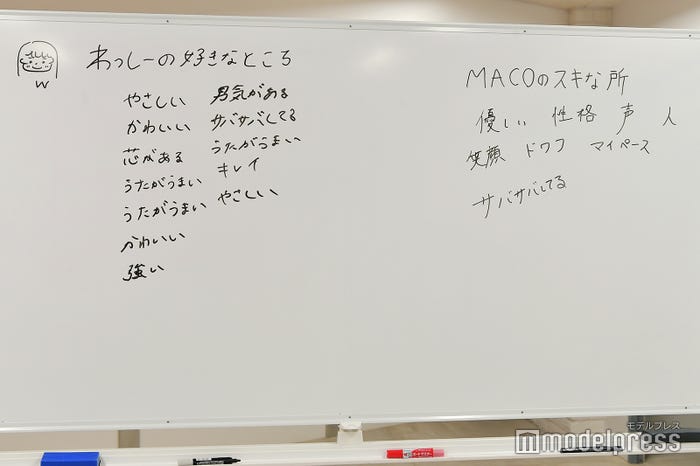 わっしーの好きなところ
W
やさしい
かわいい
芯がある
うたがうまい
うたがうまい
かわいい
強い
男気がある
サバサバしてる
うたがうまい
キレイ
やさしい
MACOのスキな所
優しい 性格 声 人
笑顔 ドワフ マイペース
サバサバしてる
モデルプレス
modelpress